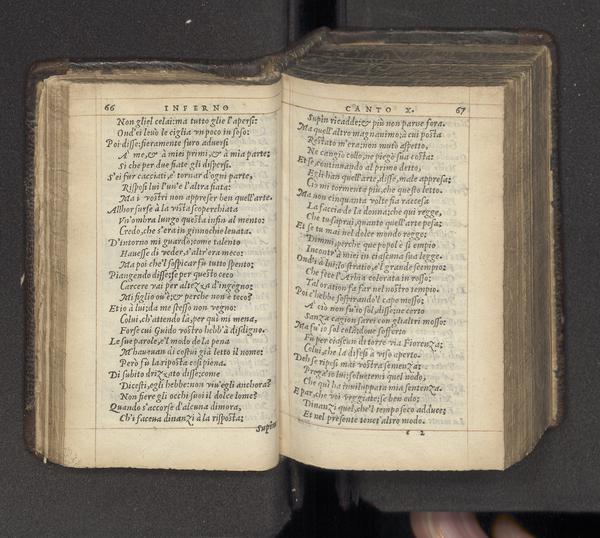 66 INFERNO
Non gliel celai: ma tutto glie l'apersi:
Ond'ei leuò le ciglia un poco in soso:
Poi disse: fieramente furo aduersi
A me, & à miei primi, & à mia parte;
Si che per due fiate gli dispersi.
S'ei fur cacciati, e' tornar d'ogni parte,
Risposi lui l'un'e l'altra fiata:
Ma i vostri non appreser ben quell'arte.
Allhor surse à la vista scoperchiata
Vn'ombra lungo questa infin al mento:
Credo, che s'era in ginnochie leuata.
D'intorno mi guardò: come talento
Hauesse di veder, s'altr'era meco:
Ma poi che'l sospicar fù tutto spento;
Piangendo disse; se per questo ceco
Carcere vai per altezza d'ingegno;
Mi figlio ou'è; & perche non è teco?
Et io à lui; da me stesso non vegno:
Colui, ch'attende la, per qui mi mena,
Forse cui Guido vostro hebb'à disdigno.
Le sue parole, e'l modo de la pena
M'haueuan di costui già letto il nome:
Però fù la risposta così piena.
Di subito drizzato disse; come
Dicesti, egli hebbe: non viu'egli anchora?
Non fiere gli occhi suoi il dolce lome?
Quando s'accorse d'alcuna dimora,
Ch'i faceua dinanzi à la risposta;
Supin
CANTO X. 67
Supin ricadde; & più non parue fora.
Ma quell'altro magnanimo; à cui posta
Restato m'era: non mutò aspetto,
Ne cangiò collo, ne piegò sua costa:
Et se, continuando al primo detto,
Egli han quell'arte, disse, male appresa;
Ciò mi tormenta più, che questo letto.
Ma non cinquanta volte fia raccesa
La faccia de la donna; che qui regge,
Che tu saprai, quanto quell'arte pesa;
Et se tu mai nel dolce mondo regge;
Dimmi, perche quel popol'è sì empio
Incontr'à miei in ciascuna sua legge.
Ond'i à lui; lo stratio, e'l grande scempio;
Che fece l'Arbia colorata in rosso:
Tal oration fa far nel nostro tempio.
Poi c'hebbe sospirando'l capo mosso;
A' ciò non fu'io sol, disse: ne certo
Sanza cagion sarei con gli altri mosso:
Ma fu'io sol colà; doue sofferto
Fù per ciascun di torre via Fiorenza;
Colui, che la difesi à viso aperto.
Deh se riposi mai vostra semenza;
Prega'io lui; soluetemi quel nodo;
Che qui ha inuiluppata mia sentenza.
E par, che voi veggiate; se ben odo;
Dinanzi quel, che'l tempo seco adduce;
Et nel presente tenet'altro modo.